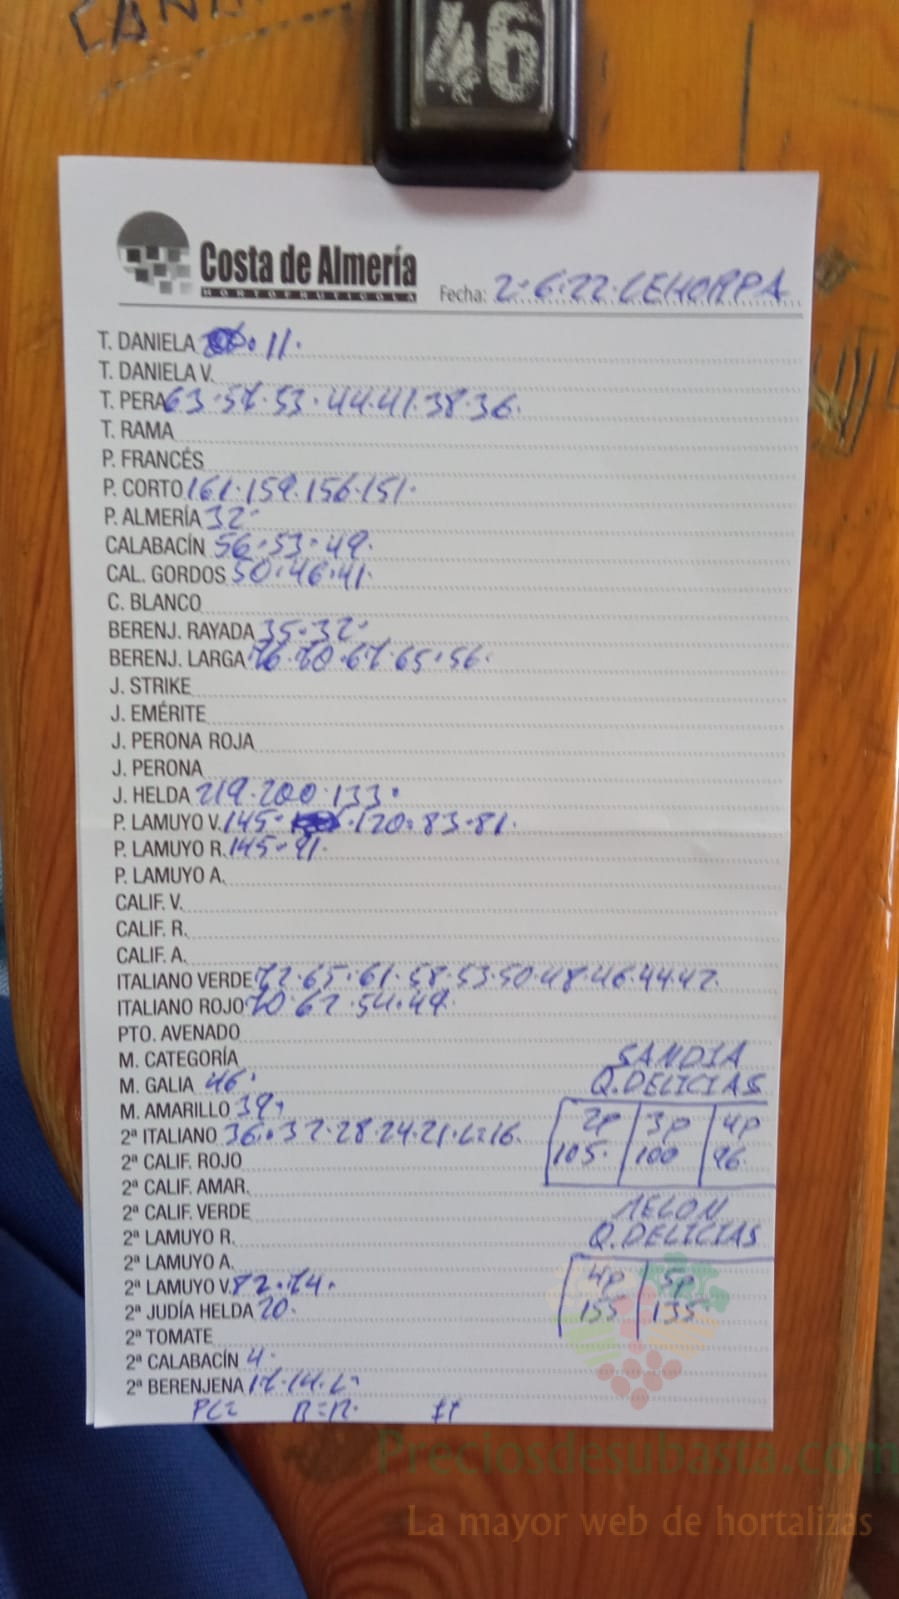 46
Costa de Almería
HORTOFRUTÍCOLA
Fecha: 2·6·22·CEHORPA
T. DANIELA 11·
T. DANIELA V.
T. PERA 63·57·53·44·41·38·36·
T. RAMA
P. FRANCÉS
P. CORTO 161·159·156·151·
P. ALMERÍA 32·
CALABACÍN 56·53·49·
CAL. GORDOS 50·46·41·
C. BLANCO
BERENJ. RAYADA 35·32·
BERENJ. LARGA 76·70·67·65·56·
J. STRIKE
J. EMÉRITE
J. PERONA ROJA
J. PERONA
J. HELDA 219·200·133·
P. LAMUYO V. 145·120·83·81·
P. LAMUYO R. 145·91·
P. LAMUYO A.
CALIF. V.
CALIF. R.
CALIF. A.
ITALIANO VERDE 72·65·61·58·53·50·48·46·44·42·
ITALIANO ROJO 70·62·54·49·
PTO. AVENADO
M. CATEGORÍA
M. GALIA 46·
M. AMARILLO 39·
2ª ITALIANO 36·32·28·24·21·L=16·
2ª CALIF. ROJO
2ª CALIF. AMAR.
2ª CALIF. VERDE
2ª LAMUYO R.
2ª LAMUYO A.
2ª LAMUYO V. 82·74·
2ª JUDÍA HELDA 20·
2ª TOMATE
2ª CALABACÍN 4·
2ª BERENJENA 17·14·
SANDIA
Q.DELICIAS
2P 3P 4P
105· 100 96·
MELON
Q.DELICIAS
4P 5P
155 135
Preciosdesubasta.com
La mayor web de hortalizas